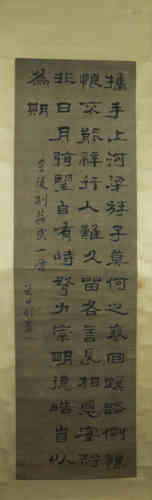 攜手上河梁斿子莫何之裵回蹊路側悢
悢不能辭行人難久留各言長相思安知
非日月弦望自有時努力崇明德皓首以
為期
李陵別蘇武一首